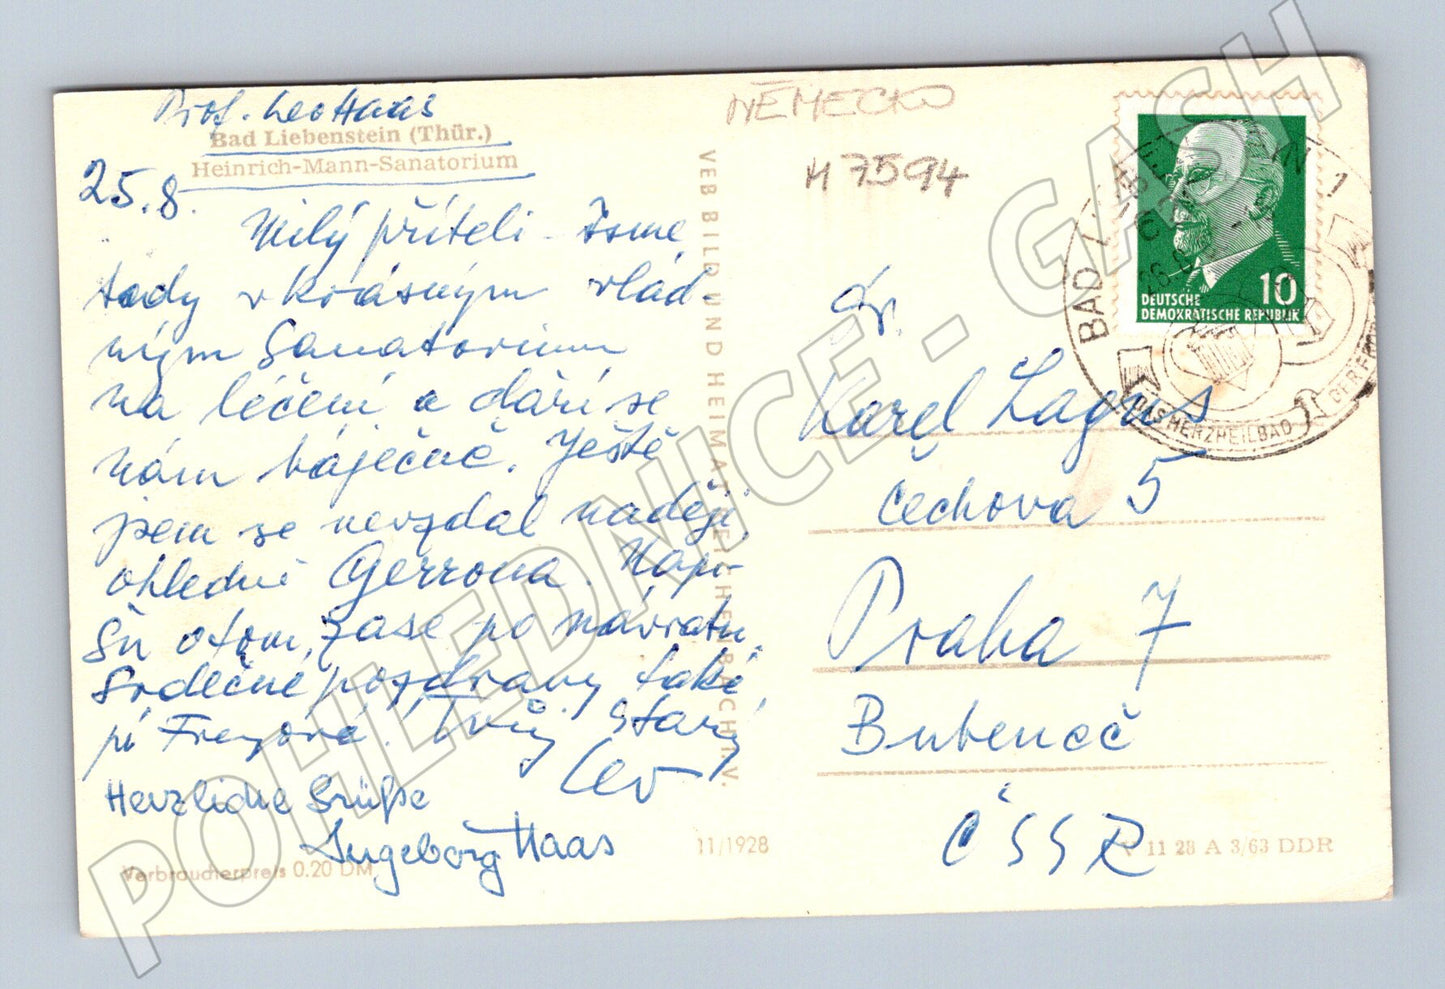 Prof. Leo Haas
Bad Liebenstein (Thür.)
Heinrich-Mann-Sanatorium
25.8.
Milý příteli - Jsme
tady v krásným vlád-
ním Sanatorium
na léčení a daří se
nám báječně. Ještě
jsem se nevzdal naděje
ohledně Gerrona. Napí-
šu o tom, zase po návratu.
Srdečné pozdravy také
pí Freyová! Tvůj starý
Leo
Herzliche Grüße
Ingeborg Haas
Verbraucherpreis 0.20 DM
VEB BILD UND HEIMAT REICHENBACH I. V.
11/1928
NĚMECKO
M 7594
DEUTSCHE
DEMOKRATISCHE REPUBLIK
10
BAD
DAS HERZHEILBAD
DER
Dr.
Karel Lagus
Čechova 5
Praha 7
Bubeneč
ČSSR
11 28 A 3/63 DDR
POHLEDNICE - GASH